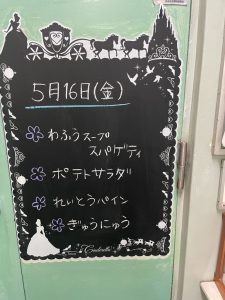 5月16日(金)
わふうスープ
スパゲティ
ポテトサラダ
れいとうパイン
ぎゅうにゅう
Cinderella